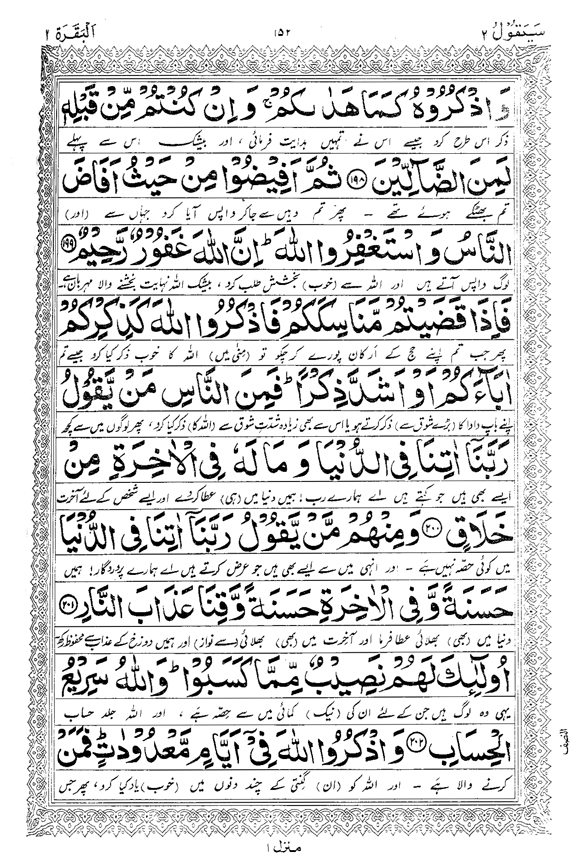 سَيَقُوْلُ ٢
١٥٢
اَلْبَقَرَة ٢
وَاذْكُرُوْهُ كَمَا هَدٰىكُمْ ۚ وَاِنْ كُنْتُمْ مِّنْ قَبْلِهٖ
ذکر اس طرح کرو جیسے اس نے تمہیں ہدایت فرمائی ، اور بیشک اس سے پہلے
لَمِنَ الضَّآلِّيْنَ ﴿١٩٨﴾ ثُمَّ اَفِيْضُوْا مِنْ حَيْثُ اَفَاضَ
تم بھٹکے ہوئے تھے ۔ پھر تم وہیں سے جا کر واپس آیا کرو جہاں سے (اور)
النَّاسُ وَاسْتَغْفِرُوا اللّٰهَ ؕ اِنَّ اللّٰهَ غَفُوْرٌ رَّحِيْمٌ ﴿١٩٩﴾
لوگ واپس آتے ہیں اور اللہ سے (خوب) بخشش طلب کرو ، بیشک اللہ نہایت بخشنے والا مہربان ہے
فَاِذَا قَضَيْتُمْ مَّنَاسِكَكُمْ فَاذْكُرُوا اللّٰهَ كَذِكْرِكُمْ
پھر جب تم اپنے حج کے ارکان پورے کر چکو تو (منٰی میں) اللہ کا خوب ذکر کیا کرو جیسے تم
اٰبَآءَكُمْ اَوْ اَشَدَّ ذِكْرًا ؕ فَمِنَ النَّاسِ مَنْ يَّقُوْلُ
اپنے باپ دادا کا (بڑے شوق سے) ذکر کرتے ہو یا اس سے بھی زیادہ شدتِ شوق سے (اللہ کا) ذکر کیا کرو ، پھر لوگوں میں سے کچھ
رَبَّنَآ اٰتِنَا فِي الدُّنْيَا وَمَا لَهٗ فِي الْاٰخِرَةِ مِنْ
ایسے بھی ہیں جو کہتے ہیں اے ہمارے رب ! ہمیں دنیا میں (ہی) عطا کر دے اور ایسے شخص کے لئے آخرت
خَلَاقٍ ﴿٢٠٠﴾ وَمِنْهُمْ مَّنْ يَّقُوْلُ رَبَّنَآ اٰتِنَا فِي الدُّنْيَا
میں کوئی حصہ نہیں ہے ۔ اور انہی میں سے ایسے بھی ہیں جو عرض کرتے ہیں اے ہمارے پروردگار ! ہمیں
حَسَنَةً وَّفِي الْاٰخِرَةِ حَسَنَةً وَّقِنَا عَذَابَ النَّارِ ﴿٢٠١﴾
دنیا میں (بھی) بھلائی عطا فرما اور آخرت میں (بھی) بھلائی (سے نواز) اور ہمیں دوزخ کے عذاب سے محفوظ رکھ
اُولٰٓئِكَ لَهُمْ نَصِيْبٌ مِّمَّا كَسَبُوْا ؕ وَاللّٰهُ سَرِيْعُ
یہی وہ لوگ ہیں جن کے لئے ان کی (نیک) کمائی میں سے حصہ ہے ، اور اللہ جلد حساب
الْحِسَابِ ﴿٢٠٢﴾ وَاذْكُرُوا اللّٰهَ فِيْٓ اَيَّامٍ مَّعْدُوْدٰتٍ ؕ فَمَنْ
کرنے والا ہے ۔ اور اللہ کو (ان) گنتی کے چند دنوں میں (خوب) یاد کیا کرو ، پھر جس
النصف
منزل ١